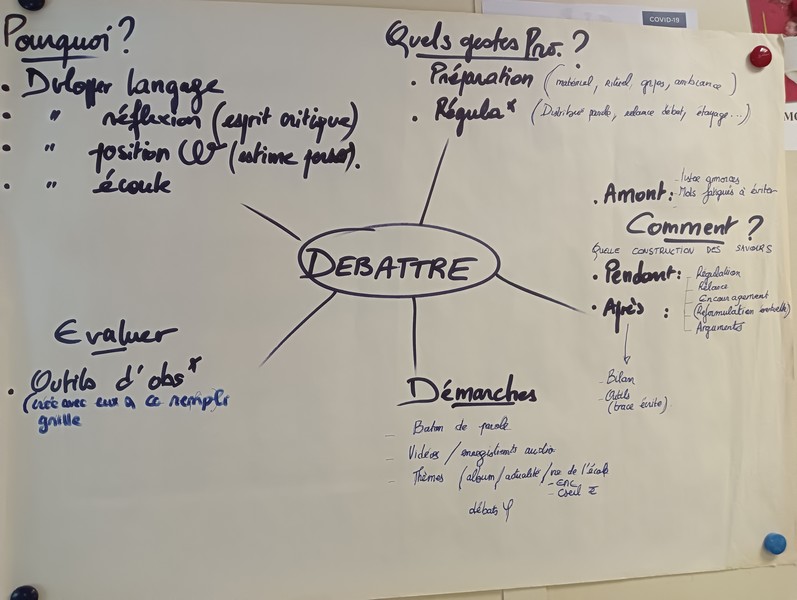 COVID-19
Pourquoi ?
• Dvlopper langage
• " réflexion (esprit critique)
• " position (estime perso).
• " écoute
Quels gestes Pro. ?
• Préparation (matériel, rituel, grpes, ambiance)
• Régula* (Distribu° parole, relance débat, étayage...)
DEBATTRE
• Amont :
- Liste amorces
- Mots fatigués à éviter
Comment ?
QUELLE CONSTRUCTION DES SAVOIRS
• Pendant :
- Régulation
- Relance
- Encouragement
- (Reformulation éventuelle)
- Arguments
• Après :
- Bilan
- Outils
(trace écrite)
Evaluer
• Outils d'obs*
(créé avec eux
grille
Démarches
- Baton de parole
- Vidéos / enregistremts audio
- Thèmes (album / actualité / vie de l'école
- EMC
- Cseil
débats φ